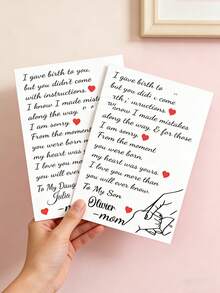 I gave birth to you
but you didn't come
with instructions.
I know I made mistakes
along the way.
I am sorry.
From the moment
you were born,
my heart was yours.
I love you more
you will ever
To My Dau
Julia
I gave birth to
but you didn't come
instructions.
know I made mistakes
along the way, & for those
I am sorry.
From the moment
you were born,
my heart was yours.
I love you more than
you will ever know.
To My Son
Olivier
-mom